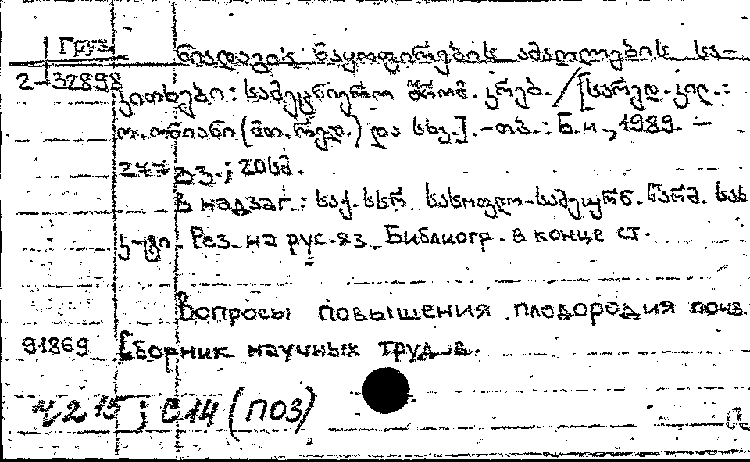 Груз.
ნიადაგის ნაყოფიერების ამაღლების სა-
2-32898
კითხები: სამეცნიერო შრომ. კრებ. / [სარედ. კოლ.:
ო. ონიანი (მთ. რედ.) და სხვ.]. - თბ.: Б.и., 1989. -
277 გვ.; 20 სმ.
В надзаг.: საქ. სსრ სასოფლო-სამეურნ. წარმ. სახ
Рез. на рус. яз. Библиогр. в конце ст.
Вопросы повышения плодородия почв.
91869 Сборник научных трудов.
Ч215; С14 (ПОЗ)